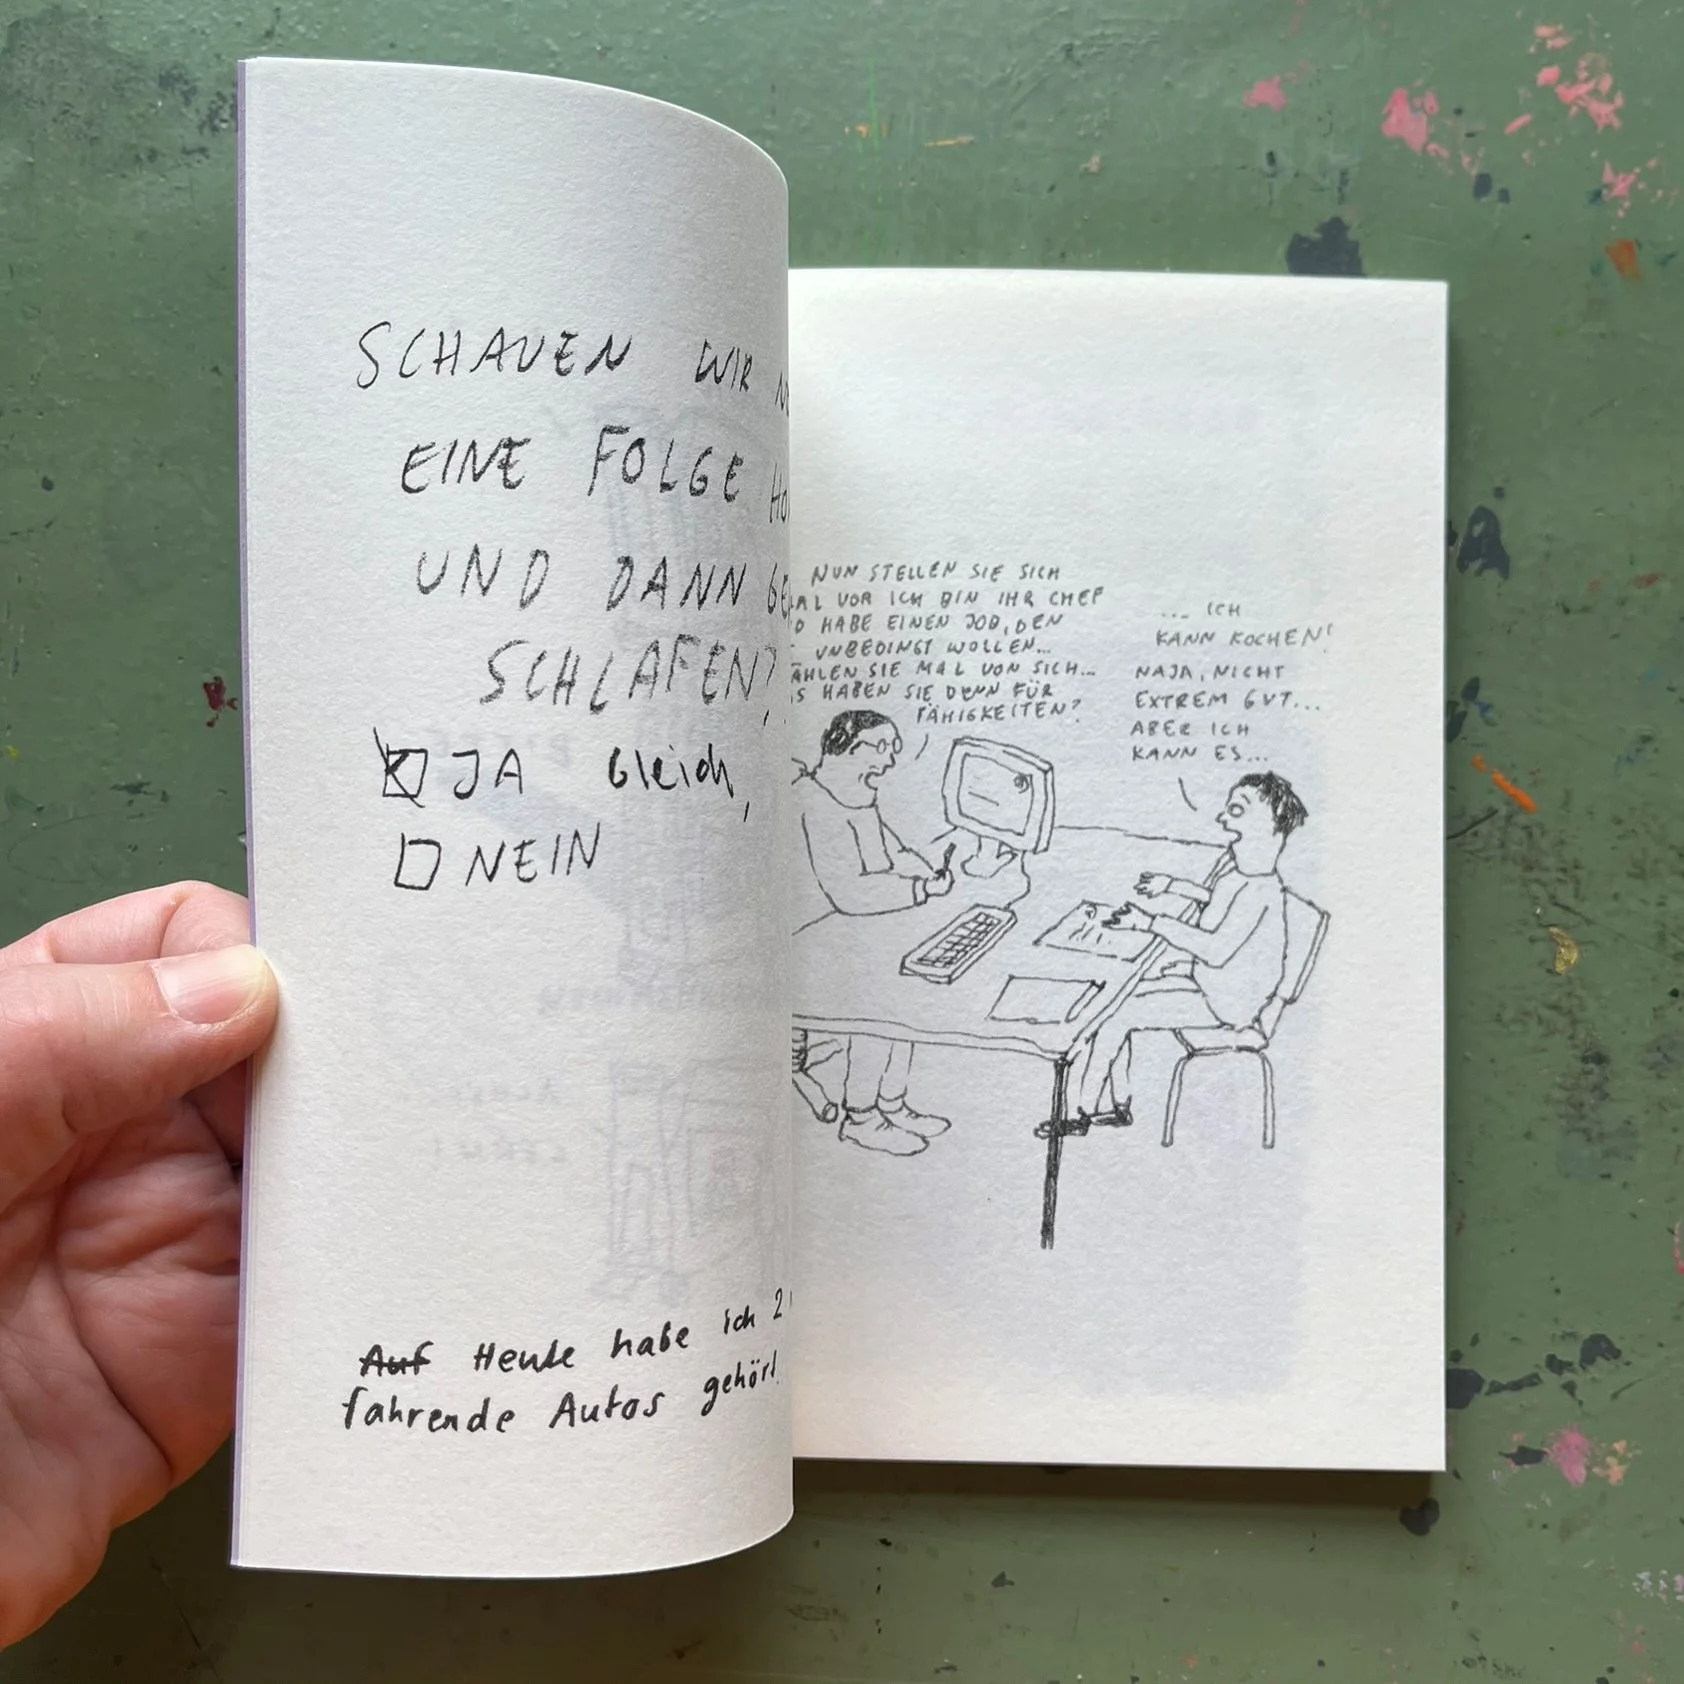 SCHAUEN WIR
EINE FOLGE
UND DANN
SCHLAFEN?
JA Gleich,
NEIN
Auf Heute habe ich 2
fahrende Autos gehört
NUN STELLEN SIE SICH
VOR ICH BIN IHR CHEF
HABE EINEN JOB, DEN
UNBEDINGT WOLLEN...
SIE MAL VON SICH...
HABEN SIE DENN FÜR
FÄHIGKEITEN?
... ICH
KANN KOCHEN!
NAJA, NICHT
EXTREM GUT...
ABER ICH
KANN ES...